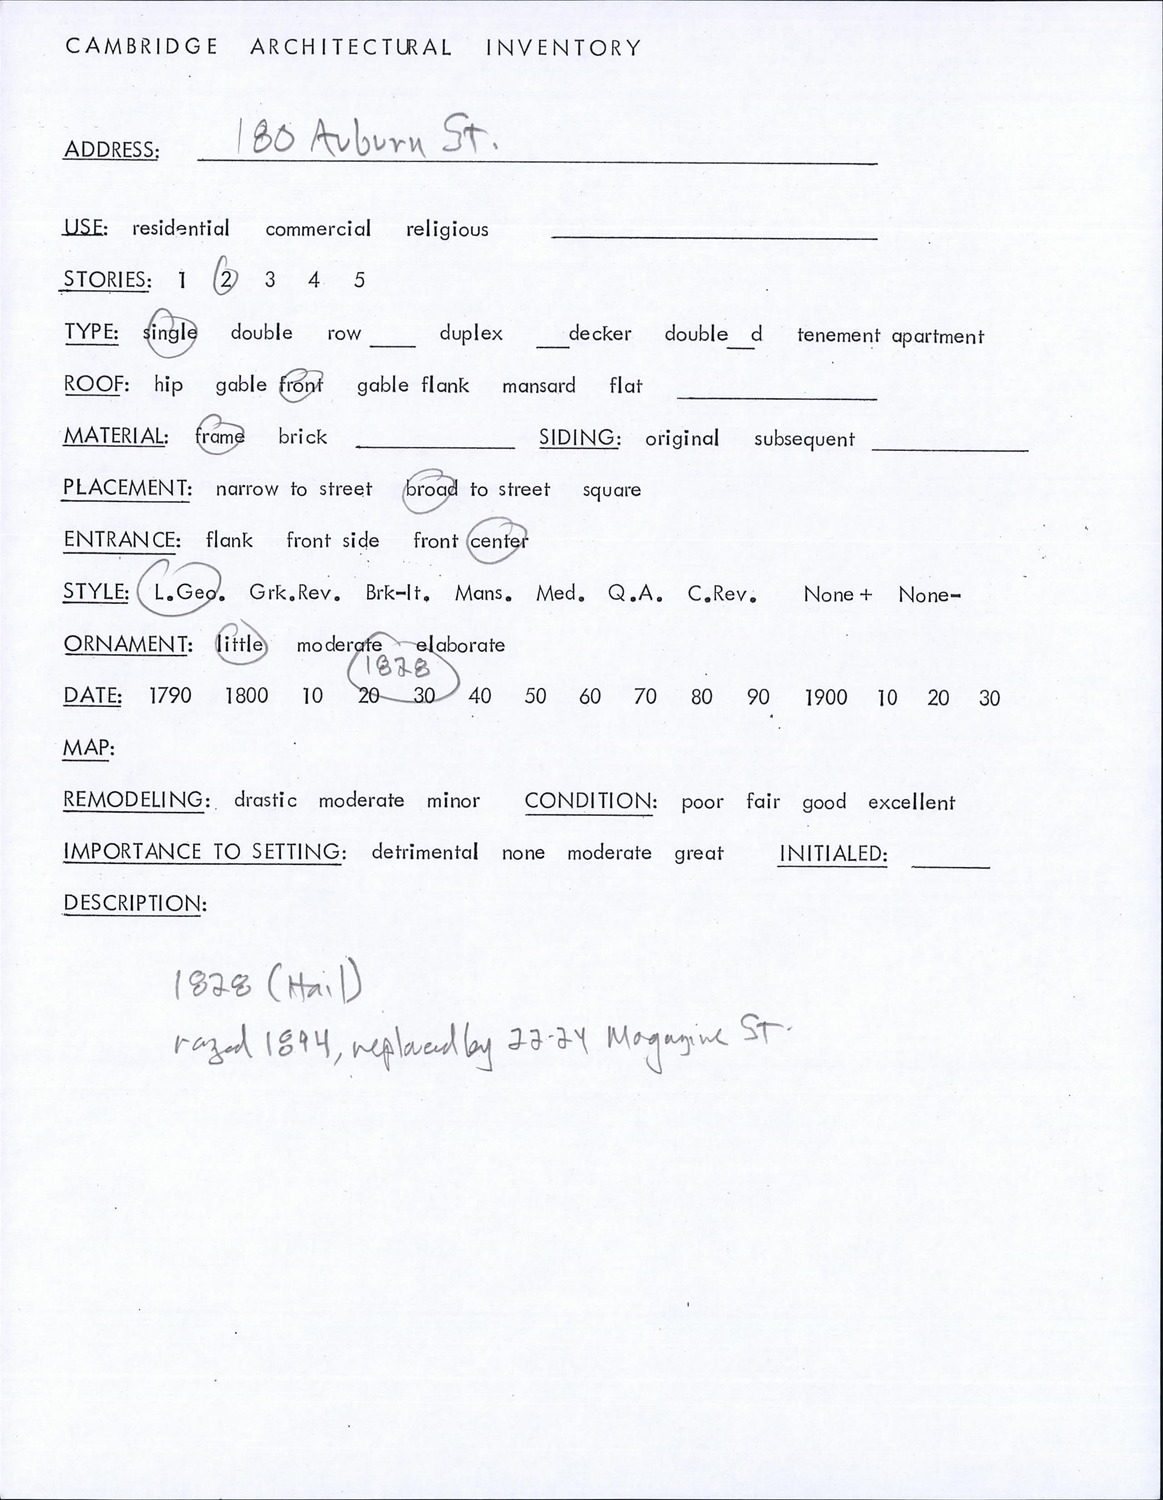 CAMBRIDGE ARCHITECTURAL INVENTORY
ADDRESS: 180 Auburn St.
USE: residential commercial religious
STORIES: 1 2 3 4 5
TYPE: single double row ____ duplex ____decker double___d tenement apartment
ROOF: hip gable front gable flank mansard flat
MATERIAL: frame brick SIDING: original subsequent
PLACEMENT: narrow to street broad to street square
ENTRANCE: flank front side front center
STYLE: L.Geo. Grk.Rev. Brk-It. Mans. Med. Q.A. C.Rev. None + None-
ORNAMENT: little moderate elaborate
1828
DATE: 1790 1800 10 20 30 40 50 60 70 80 90 1900 10 20 30
MAP:
REMODELING: drastic moderate minor CONDITION: poor fair good excellent
IMPORTANCE TO SETTING: detrimental none moderate great INITIALED:
DESCRIPTION:
1828 (Hail)
razed 1894, replaced by 22-24 Magazine St.